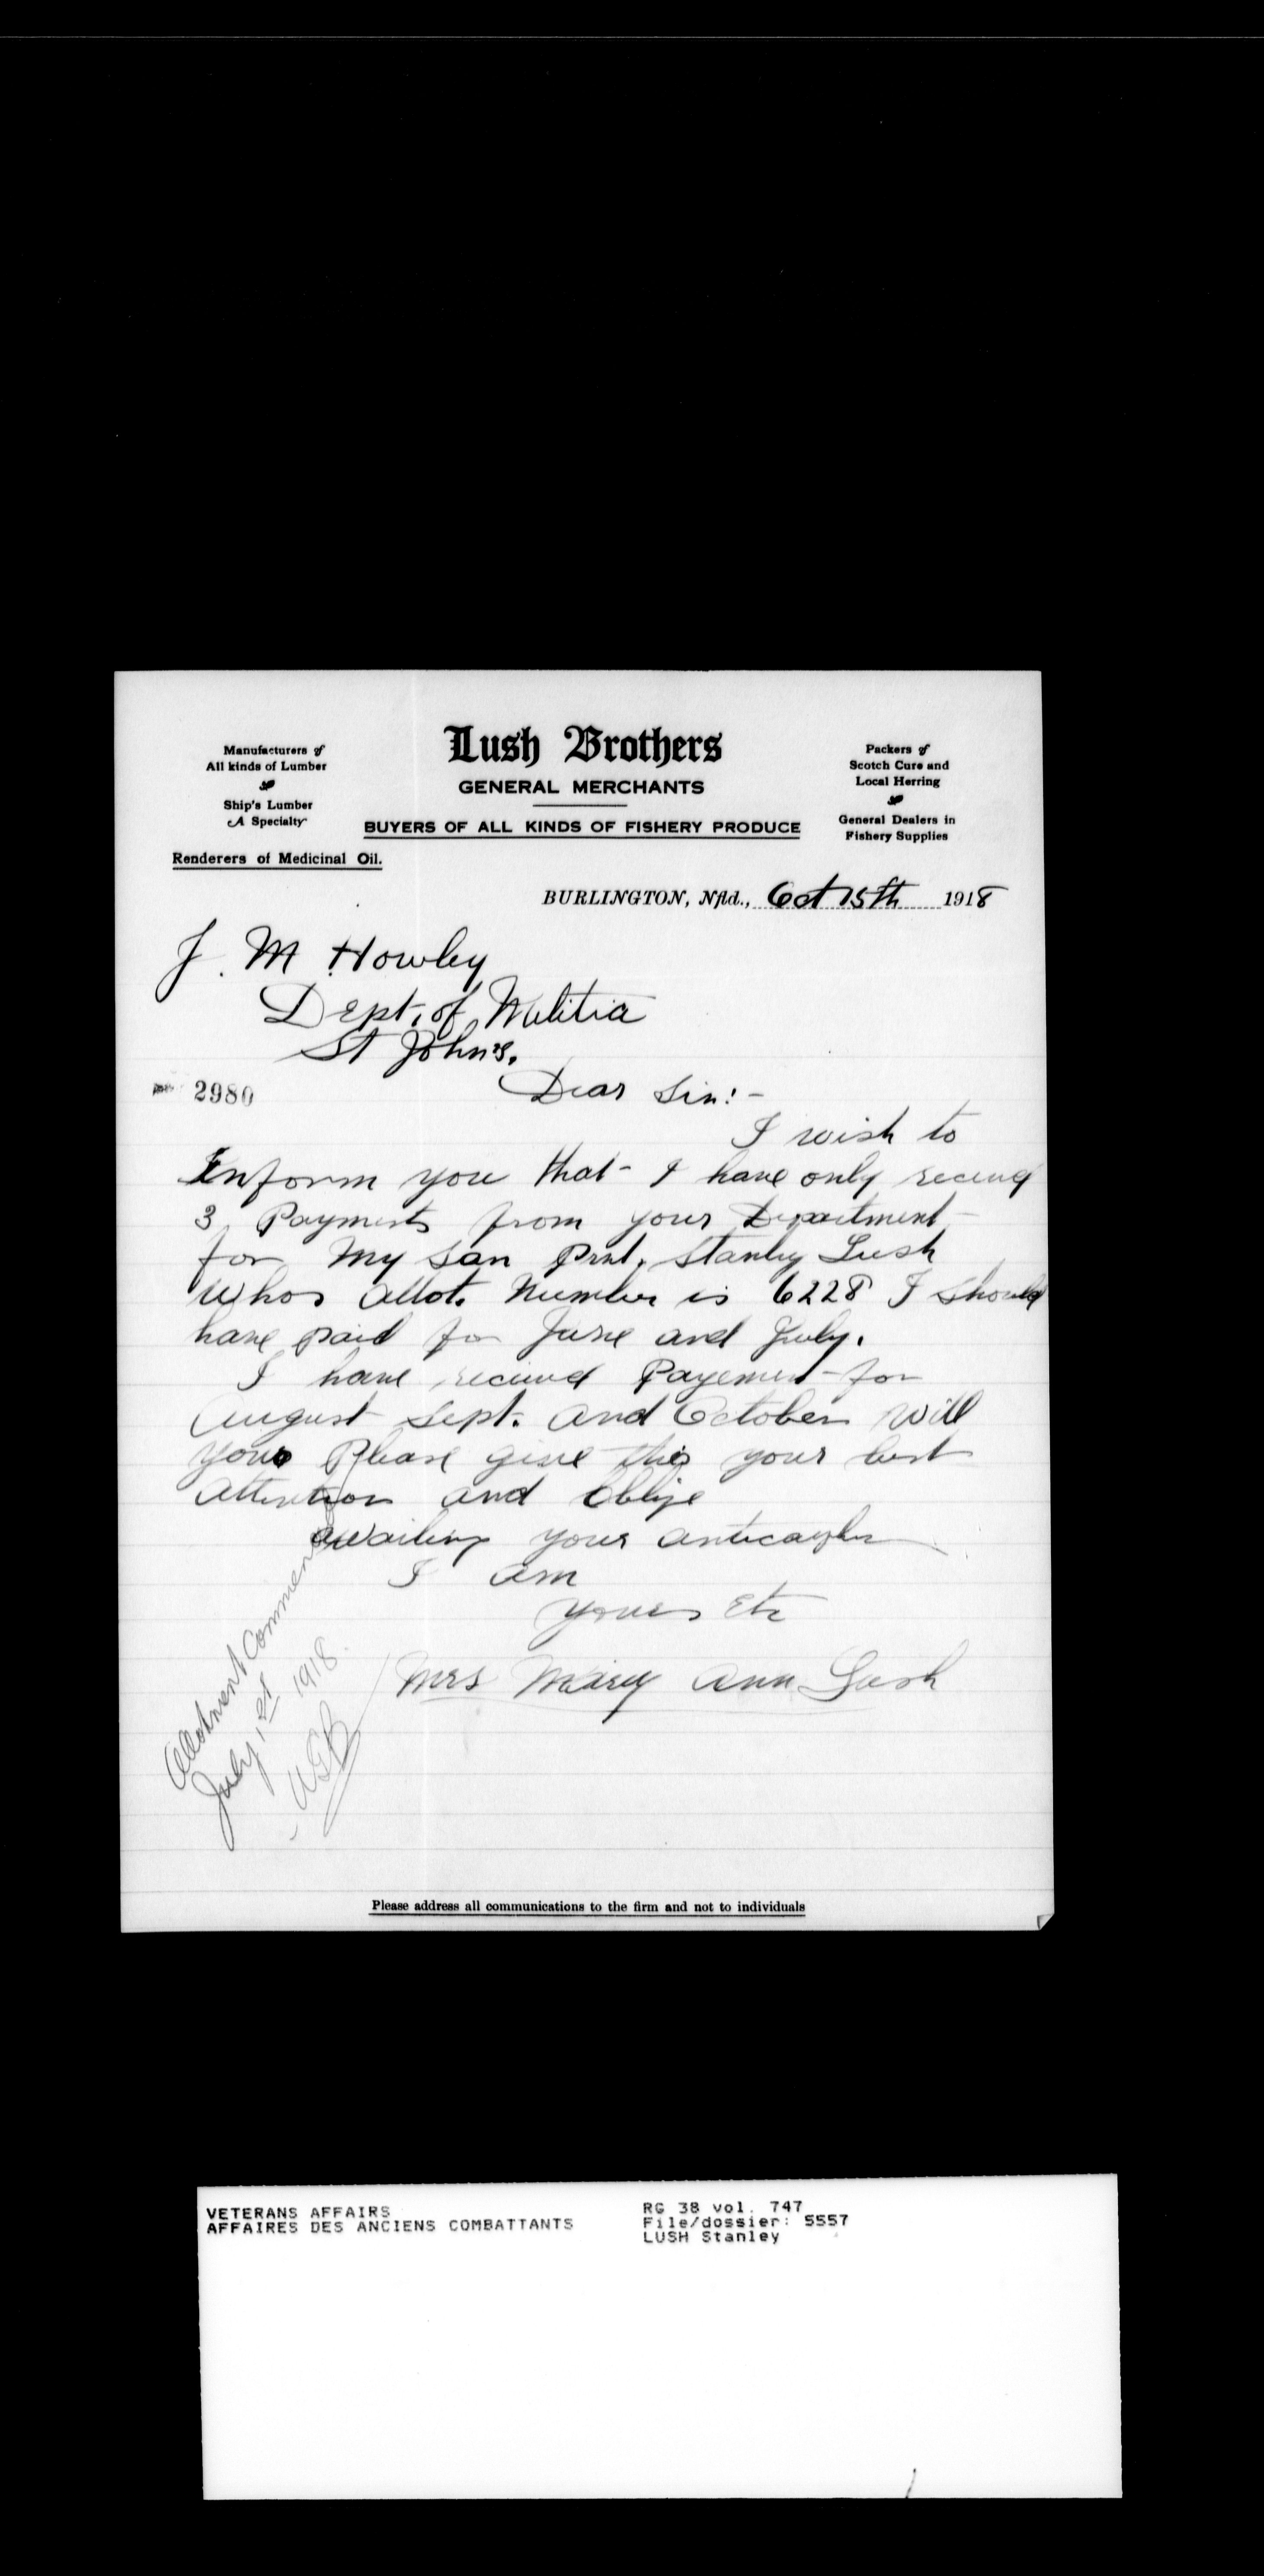 Lush Brothers
GENERAL MERCHANTS
BUYERS OF ALL KINDS OF FISHERY PRODUCE
Manufacturers of
All kinds of Lumber
Ship's Lumber
A Specialty
Renderers of Medicinal Oil.
Packers of
Scotch Cure and
Local Herring
General Dealers in
Fishery Supplies
BURLINGTON, Nfld., Oct 15th 1918
J. M Howley
Dept. of Militia
St John's.
2980
Dear Sir:-
I wish to
Inform you that I have only
3 Payments from your Department
for My son Stanley Lush
Whos allot. Number is 6228 I should
have paid for June and July.
I have Payement for
August Sept. and October will
you Please give this your best
attention and Oblige
awaiting your
I am
yours Etc
Mrs Mary Ann Lush
Allotment Commenced
July 1st 1918.
Please address all communications to the firm and not to individuals
VETERANS AFFAIRS
AFFAIRES DES ANCIENS COMBATTANTS
RG 38 vol. 747
File/dossier: 5557
LUSH Stanley